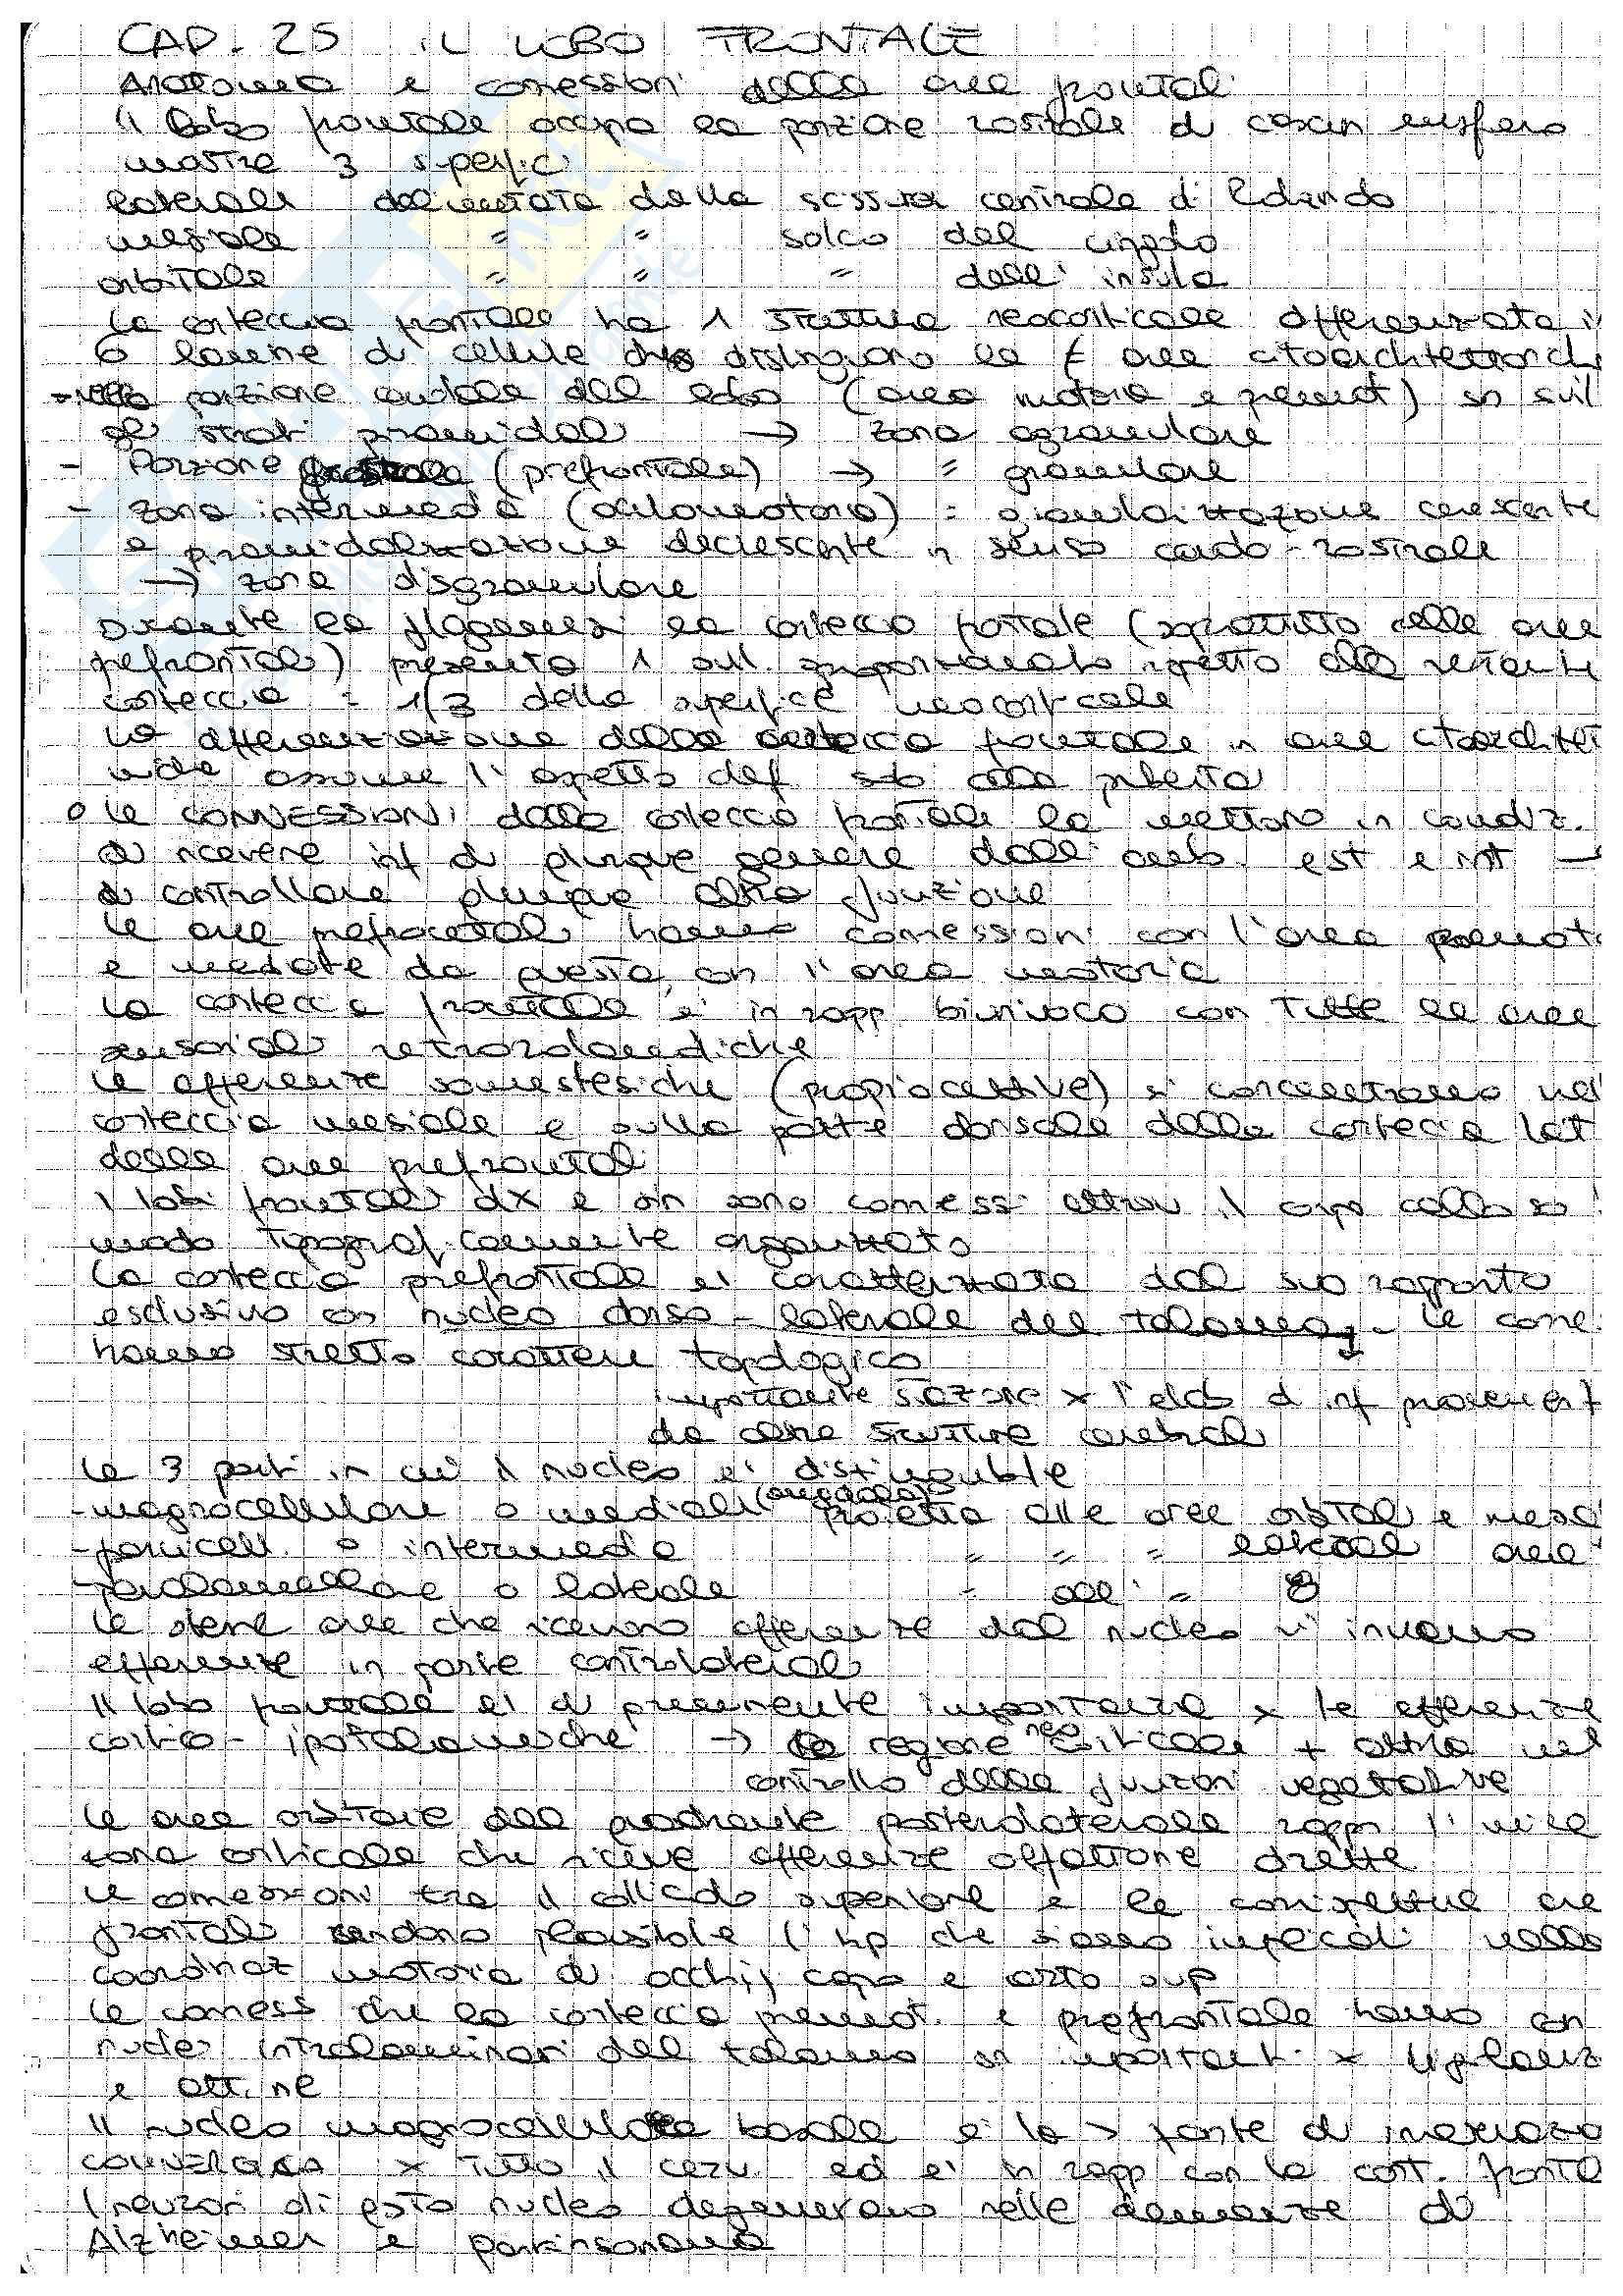 CAP. 25 IL LOBO FRONTALE
Anatomia e connessioni delle aree frontali
Il lobo frontale occupa la porzione rostrale di ciascun emisfero
mostra 3 superfici
laterale delimitata dalla scissura centrale di Rolando
mesiale = = solco del cingolo
orbitale = = = dell'insula
La corteccia frontale ha 1 struttura neocorticale differenziata in
6 lamine di cellule che distinguono le ≠ aree citoarchitettonich
- nella porzione caudale del lobo (area motoria e premot) sn svil
gli strati piramidali → zona agranulare
- Porzione (prefrontale) → = granulare
- zona intermedia (oculomotoria) = granularizzazione crescente
e piramidalizzazione decrescente in senso caudo-rostrale
→ zona disgranulare
Durante la filogenesi la corteccia frontale (soprattutto delle aree
prefrontali) presenta 1 svil. rispetto alla restante
corteccia = 1/3 della superficie neocorticale
La differenziazione della corteccia frontale in aree citoarchitet
assume l'aspetto def. solo alla pubertà
o Le CONNESSIONI della corteccia frontale la mettono in condiz.
di ricevere inf di qualunque genere dall'amb. est e int →
di controllare qualunque altra funzione
Le aree prefrontali hanno connessioni con l'area premoto
e mediate da questa, con l'area motoria
La corteccia frontale è in rapp biunivoco con tutte le aree
sensoriali retrorolandiche
Le afferenze somestesiche (propriocettive) si concentrano nel
corteccia mesiale e sulla parte dorsale della corteccia lat
delle aree prefrontali
I lobi frontali dx e sin sono connessi attrav il corpo calloso i
modo topograficamente organizzato
La corteccia prefrontale è caratterizzata dal suo rapporto
esclusivo con nucleo dorso-laterale del talamo. Le conn.
hanno stretto carattere topologico
importante stazione x l'elab di inf provenient
da altre strutture cerebrali
Le 3 parti in cui il nucleo è distinguibile
- magnocellulare o mediale (amigdala) proietta alle aree orbitali e mesial
- parvicell. o intermedia = = = laterali aree
- paralamellare o laterale = all' = 8
Le stesse aree che ricevono afferenze dal nucleo vi inviano
efferenze in parte controlaterali
Il lobo frontale è di preminente importanza x le efferenze
cortico-ipotalamiche → la regione neocorticale + attiva nel
controllo delle funzioni vegetative
Le aree orbitarie del quadrante posterolaterale rappr l'unica
zona corticale che riceve afferenze olfattorie dirette
Le connessioni tra il collicolo superiore e le aree
frontali rendono plausibile l'hp che siano implicati nella
coordinaz motoria di occhi, capo e arto sup
Le conness che la corteccia premot. e prefrontale hanno con
nuclei intralaminari del talamo sn importanti x vigilanza
e att.ne
Il nucleo magnocellulare basale è la > fonte di innervazio
colinergica x tutto il cerv. ed è in rapp con la cort. fronta
I neuroni di qsto nucleo degenerano nelle demenze di
Alzheimer e parkinsoniana